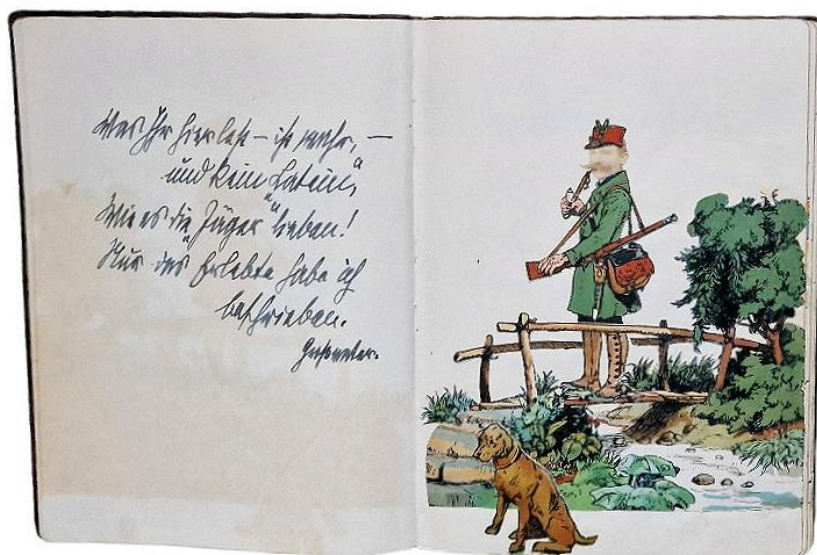 Was Ihr hier lest – ist wahr, –
und kein „Latein“,
Wie es die „Jäger“ lieben!
Nur das Erlebte habe ich
beschrieben.
Großvater.